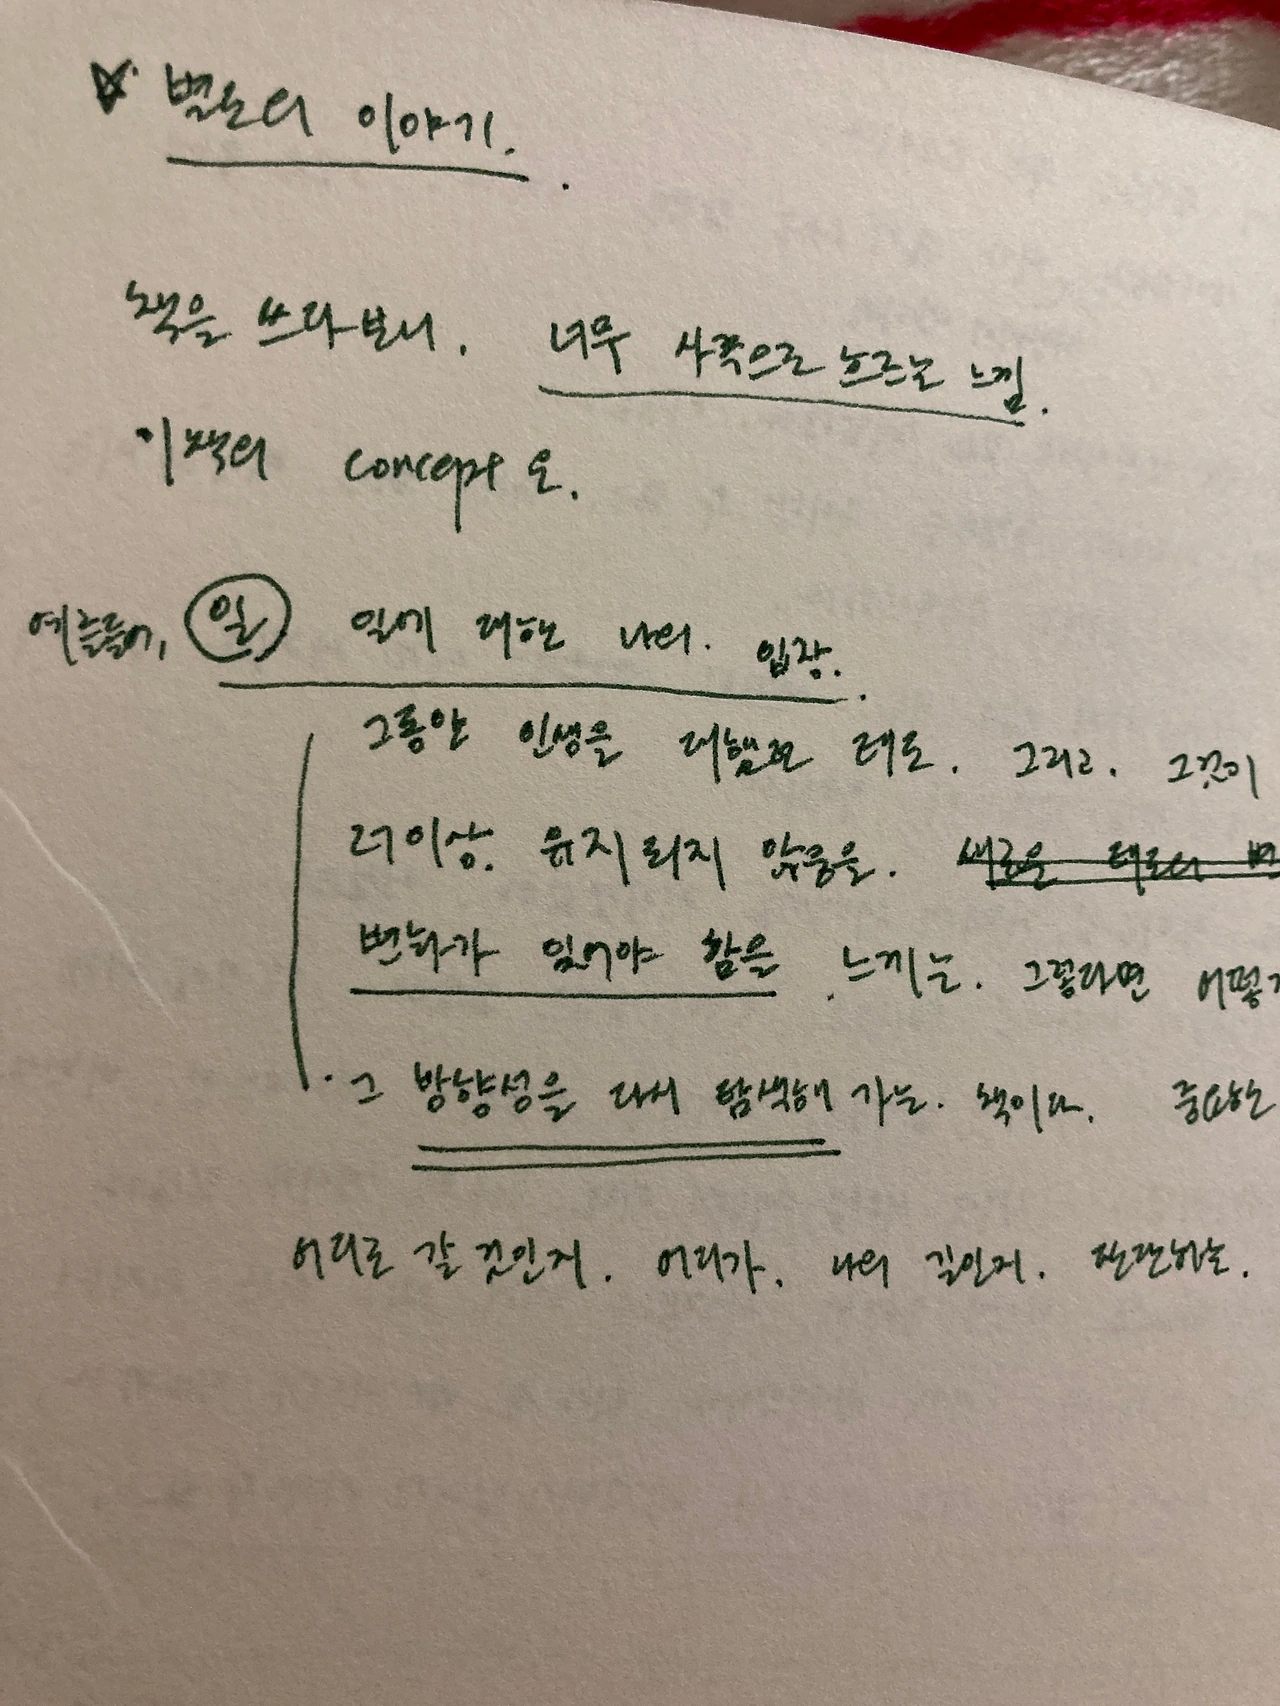 ☆ 별도의 이야기.
책을 쓰다보니. 너무 사족으로 흐르는 느낌.
이책의 concept은.
예를들어, 일 일에 대한 나의. 입장.
그동안 인생을 대했던 태도. 그리고. 그것이
더이상. 유지되지 않음을. 새로운 태도의 변
변화가 있어야 함을 느끼는. 그렇다면 어떻게
그 방향성을 다시 탐색해 가는. 책이다. 중요한
어디로 갈 것인지. 어디가. 나의 길인지. 판단하는.